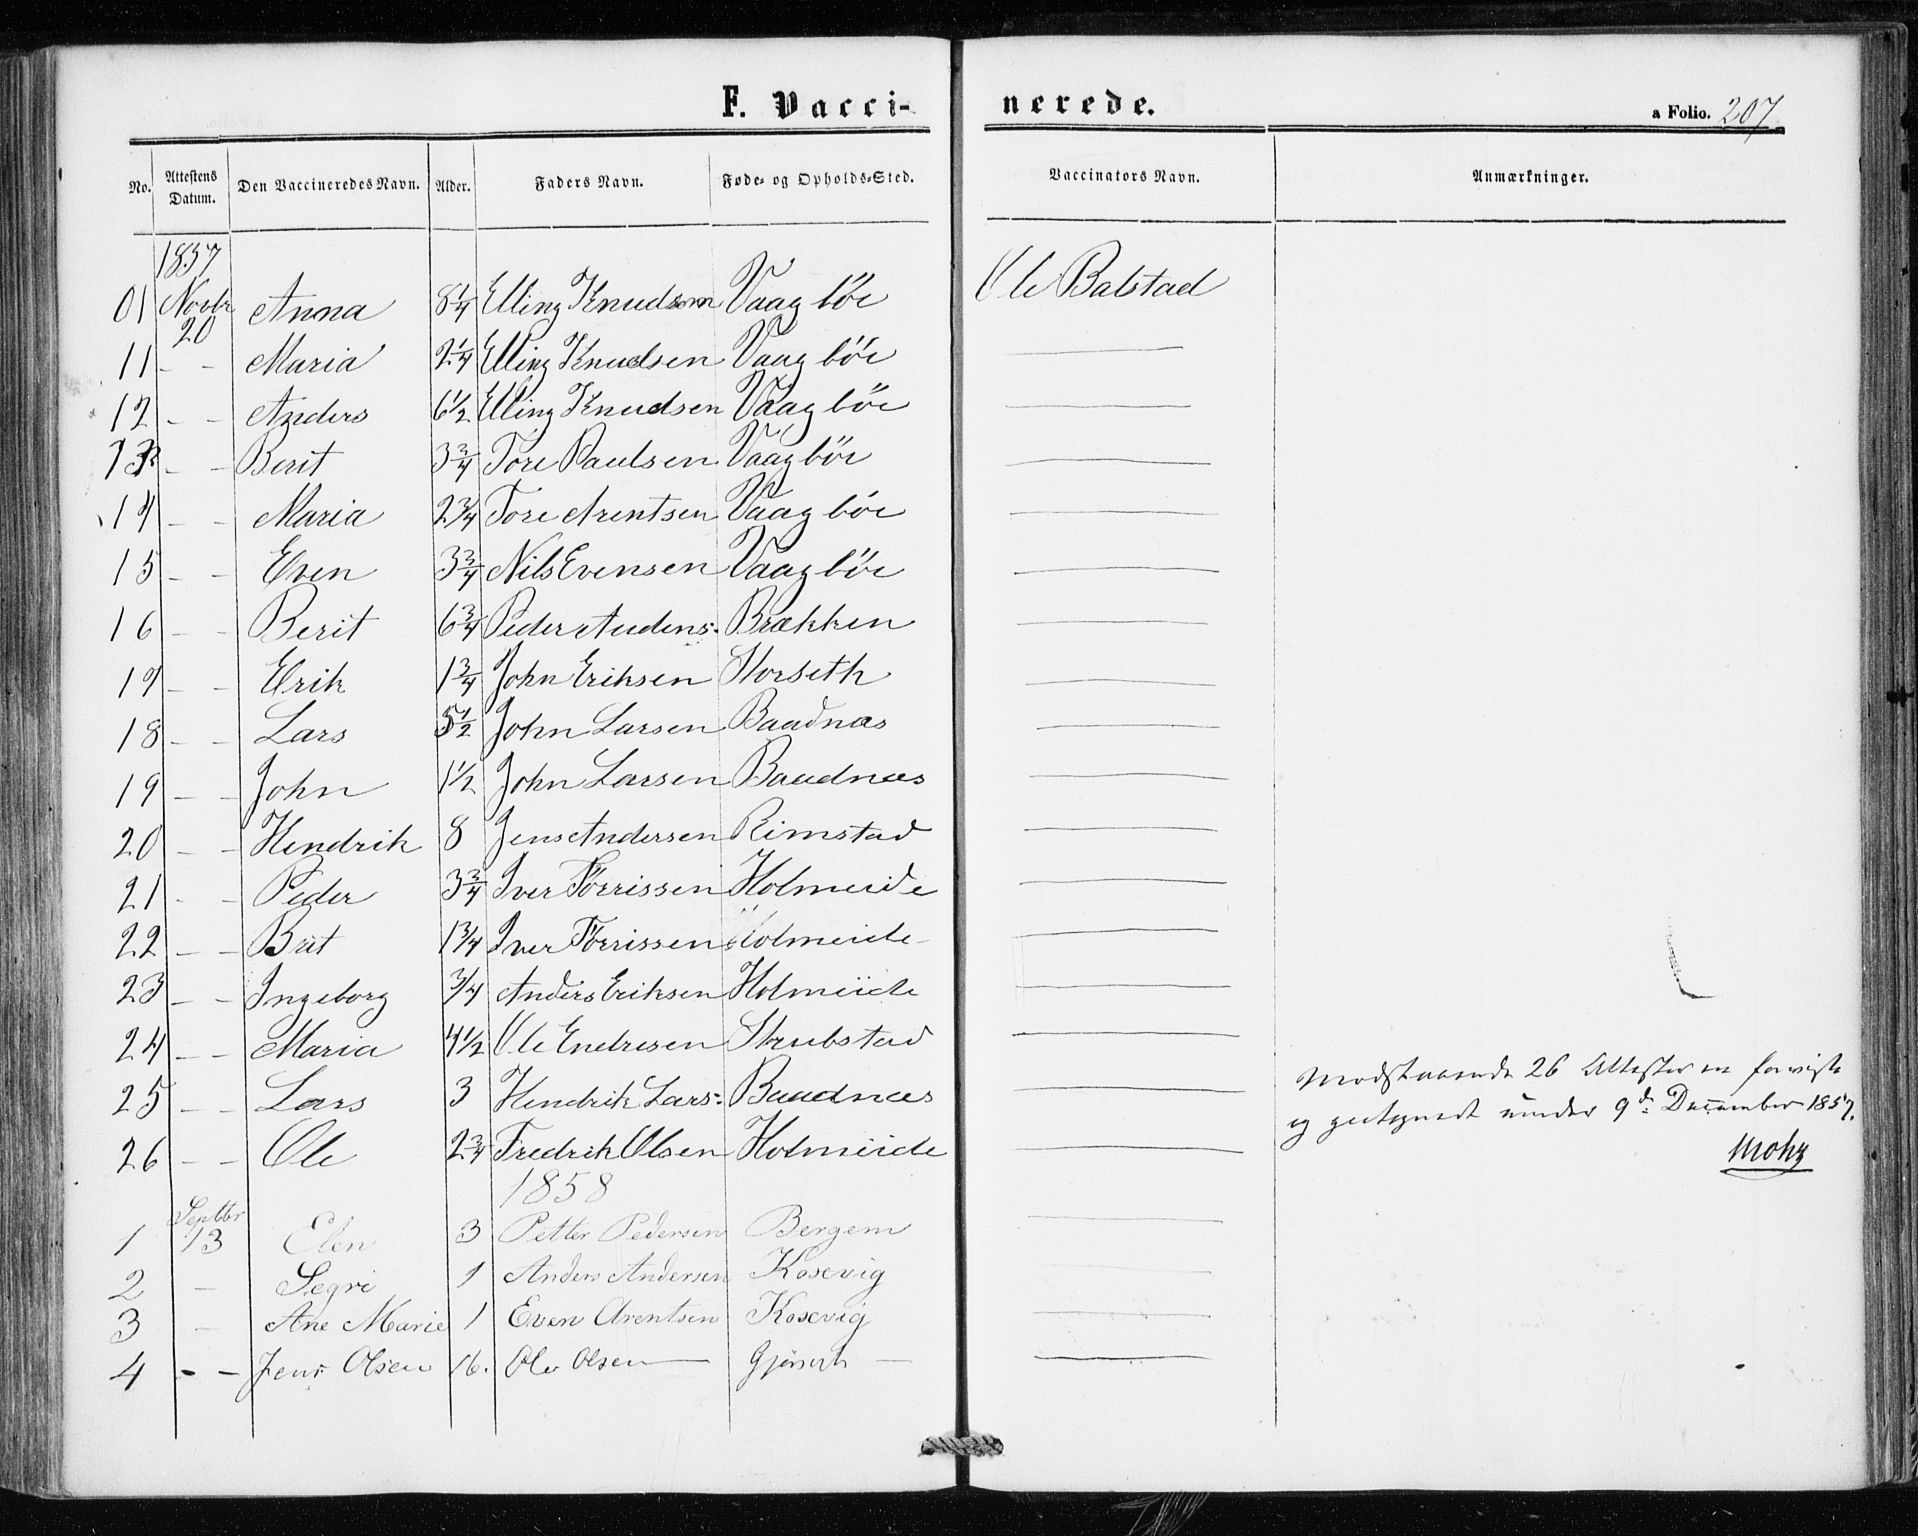 F. Vacci- nerede. a Folio. 207
No. Attestens Datum. Den Vaccineredes Navn. Alder. Faders Navn. Føde- og Opholds-Sted. Vaccinators Navn. Anmærkninger.
1857
01 Novbr 20 Anna 8 1/4 Elling Knudsen Vaagbøe Ole Balstad
11 - - Maria 2 1/4 Elling Knudsen Vaagbøe
12 - - Anders 6 1/2 Elling Knudsen Vaagbøe
13 - - Berit 3 3/4 Tore Paulsen Vaagbøe
14 - - Maria 2 3/4 Tore Arentsen Vaagbøe
15 - - Even 3 3/4 Nils Evensen Vaagbøe
16 - - Berit 6 3/4 Peder Audens: Brækken
17 - - Erik 1 3/4 John Eriksen Horseth
18 - - Lars 5 1/2 John Larsen Baadnæs
19 - - John 1 1/2 John Larsen Baadnæs
20 - - Hendrik 8 Jens Andersen Rimstad
21 - - Peder 3 3/4 Iver Tørrissen Holmeide
22 - - Brit 1 3/4 Iver Tørrissen Holmeide
23 - - Ingeborg 3/4 Anders Eriksen Holmeide
24 - - Maria 4 1/2 Ole Endresen Skrubstad
25 - - Lars 3 Hendrik Lars: Baadnæs
26 - - Ole 2 3/4 Fredrik Olsen Holmeide
Modstaaende 26 Attester er foreviste
og paategnede under 9d: December 1857.
Mohr
1858
1 Septbr 13 Elen 3 Petter Pedersen Bergem
2 - Segri 1 Anders Andersen Kosevig
3 - Ane Marie 1 Even Arentsen Kosevig
4 - - Jens Olsen 16. Ole Olsen